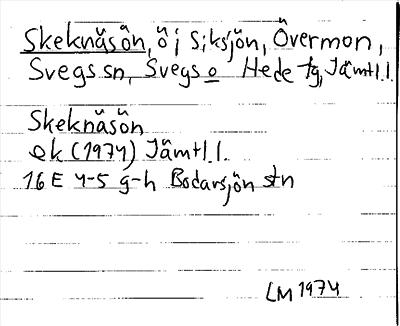 Skeknäsön, ö i Siksjön, Övermon,
Svegs sn, Svegs o Hede tg, Jämtl. l.
Skeknäsön
ek (1974) Jämtl. l.
16 E 4-5 g-h Bodarsjön stn
LM 1974